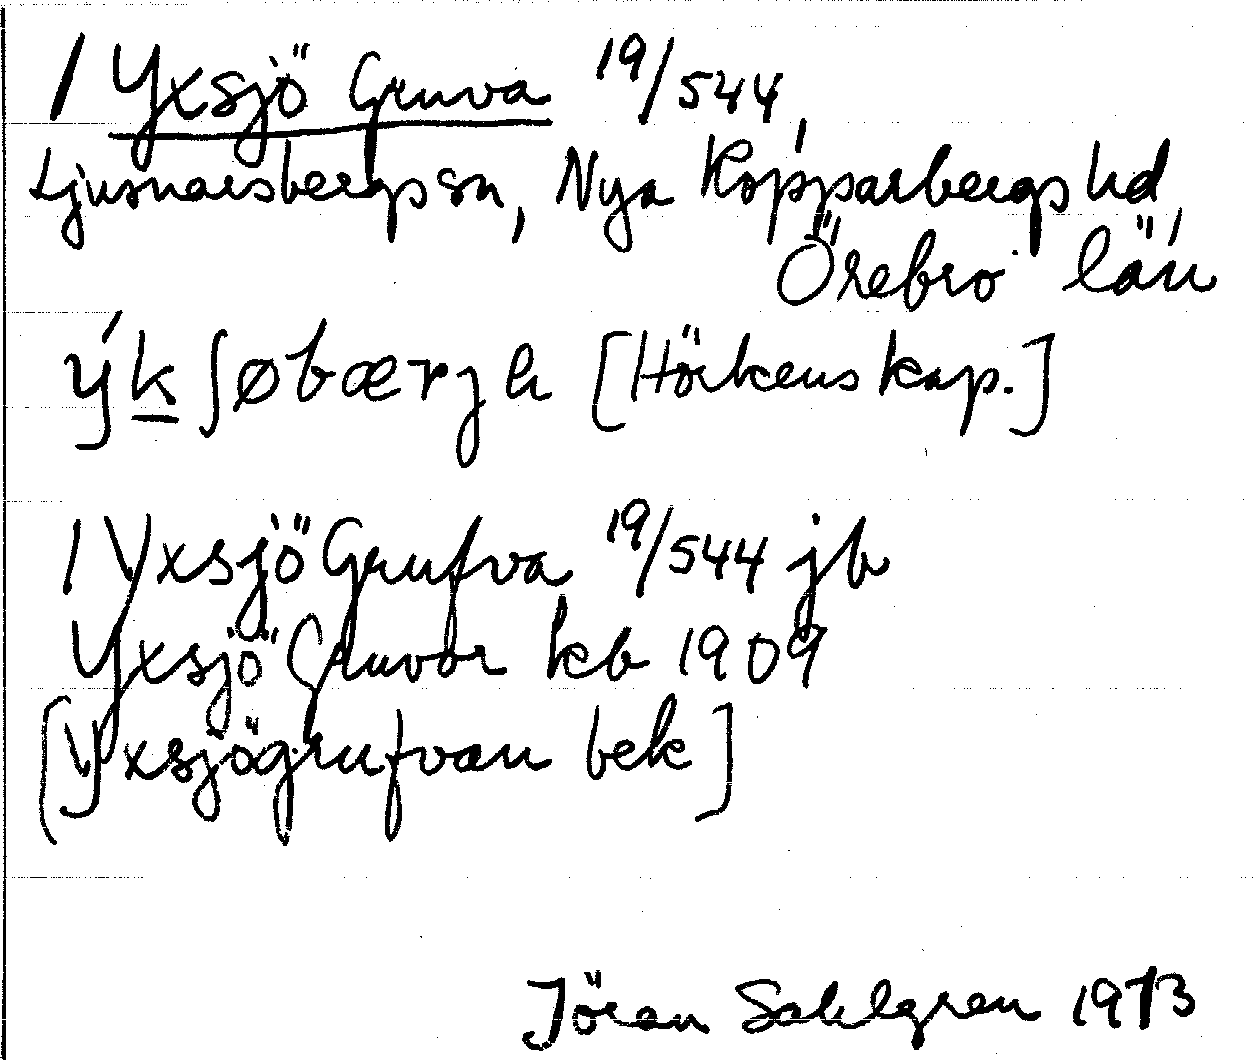 / Yxsjö Gruva 19/544,
Ljusnarsbergs sn, Nya Kopparbergs hd,
Örebro län
ýk̲ʃøbærjh [Hörkens kap.]
/ Yxsjö Grufva 19/544 jb
Yxsjö Gruvor kb 1909
[Yxsjögrufvan bek]
Jöran Sahlgren 1973